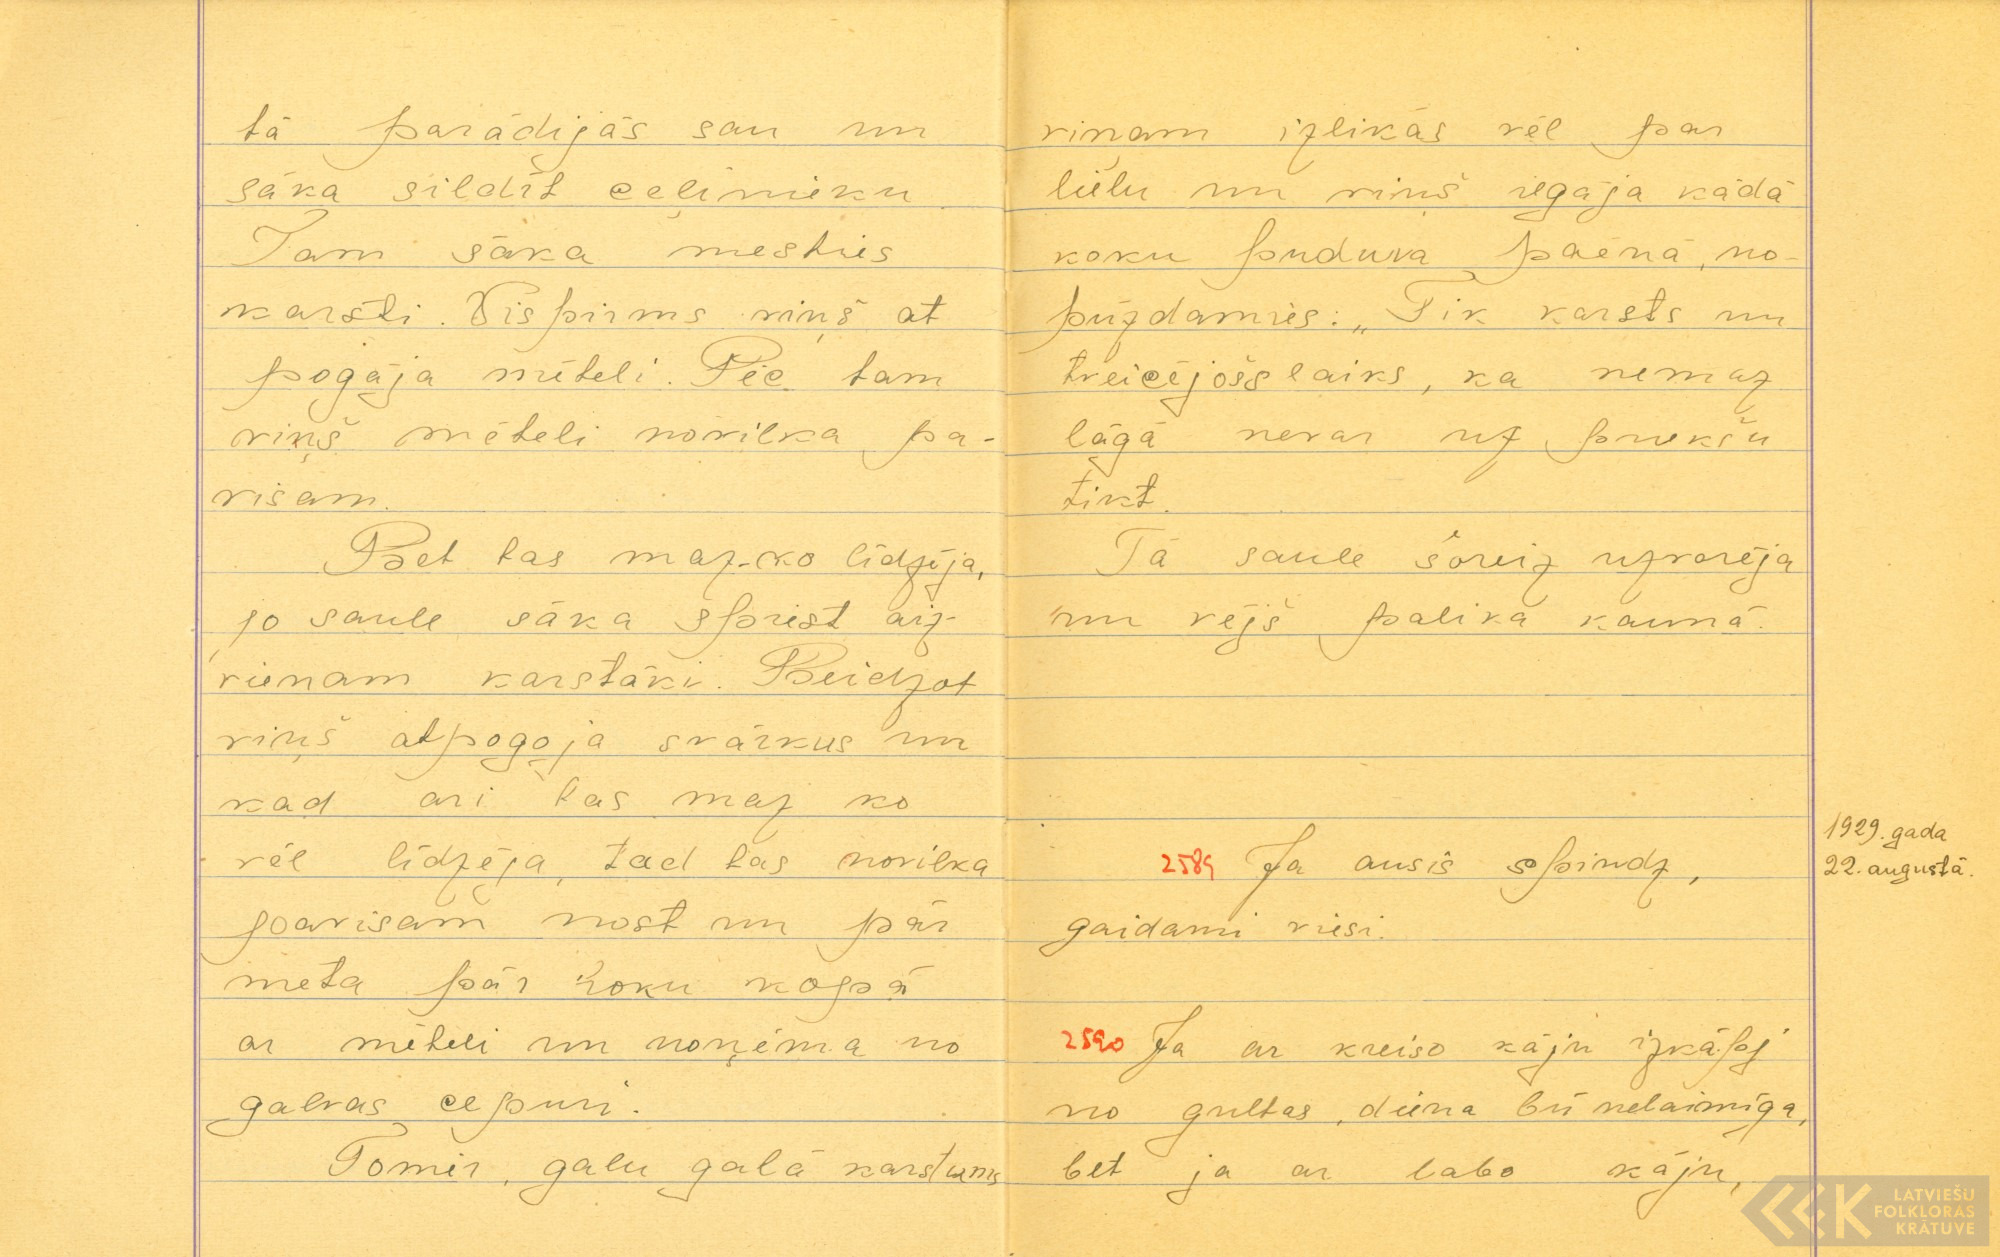 tā parādijās sau un
sāka sildīt ceļinieku.
Tam sāka mesties
karsti. Vispirms viņš at
pogāja mēteli. Pēc tam
viņš mēteli novilka pa-
visam.
Bet tas maz-ko līdzēja,
jo saule sāka spriest aiz-
vienam karstāki. Beidzot
viņš atpogoja svārkus un
kad ari tas maz ko
vēl līdzēja, tad tas novilka
pavisam nost un pār
meta pār koku kopā
ar mēteli un noņēma no
galvas cepuri.
Tomēr, galu galā karstums
viņam izlikās vēl par
lielu un viņš iegāja kādā
koku pudura paēnā, no-
pūzdamies: „Tik karsts un
tveicējošs laiks, ka nemaz
lāgā nevar uz priekšu
tikt.
Tā saule šoreiz uzvarēja
un vējš palika kaunā.
2589 Ja ausīs spindz,
gaidami viesi.
1929. gada
22. augustā.
2590 Ja ar kreiso kāju izkāpj
no gultas, diena bū nelaimīga,
bet ja ar labo kāju,
LATVIEŠU
FOLKLORAS
KRĀTUVE